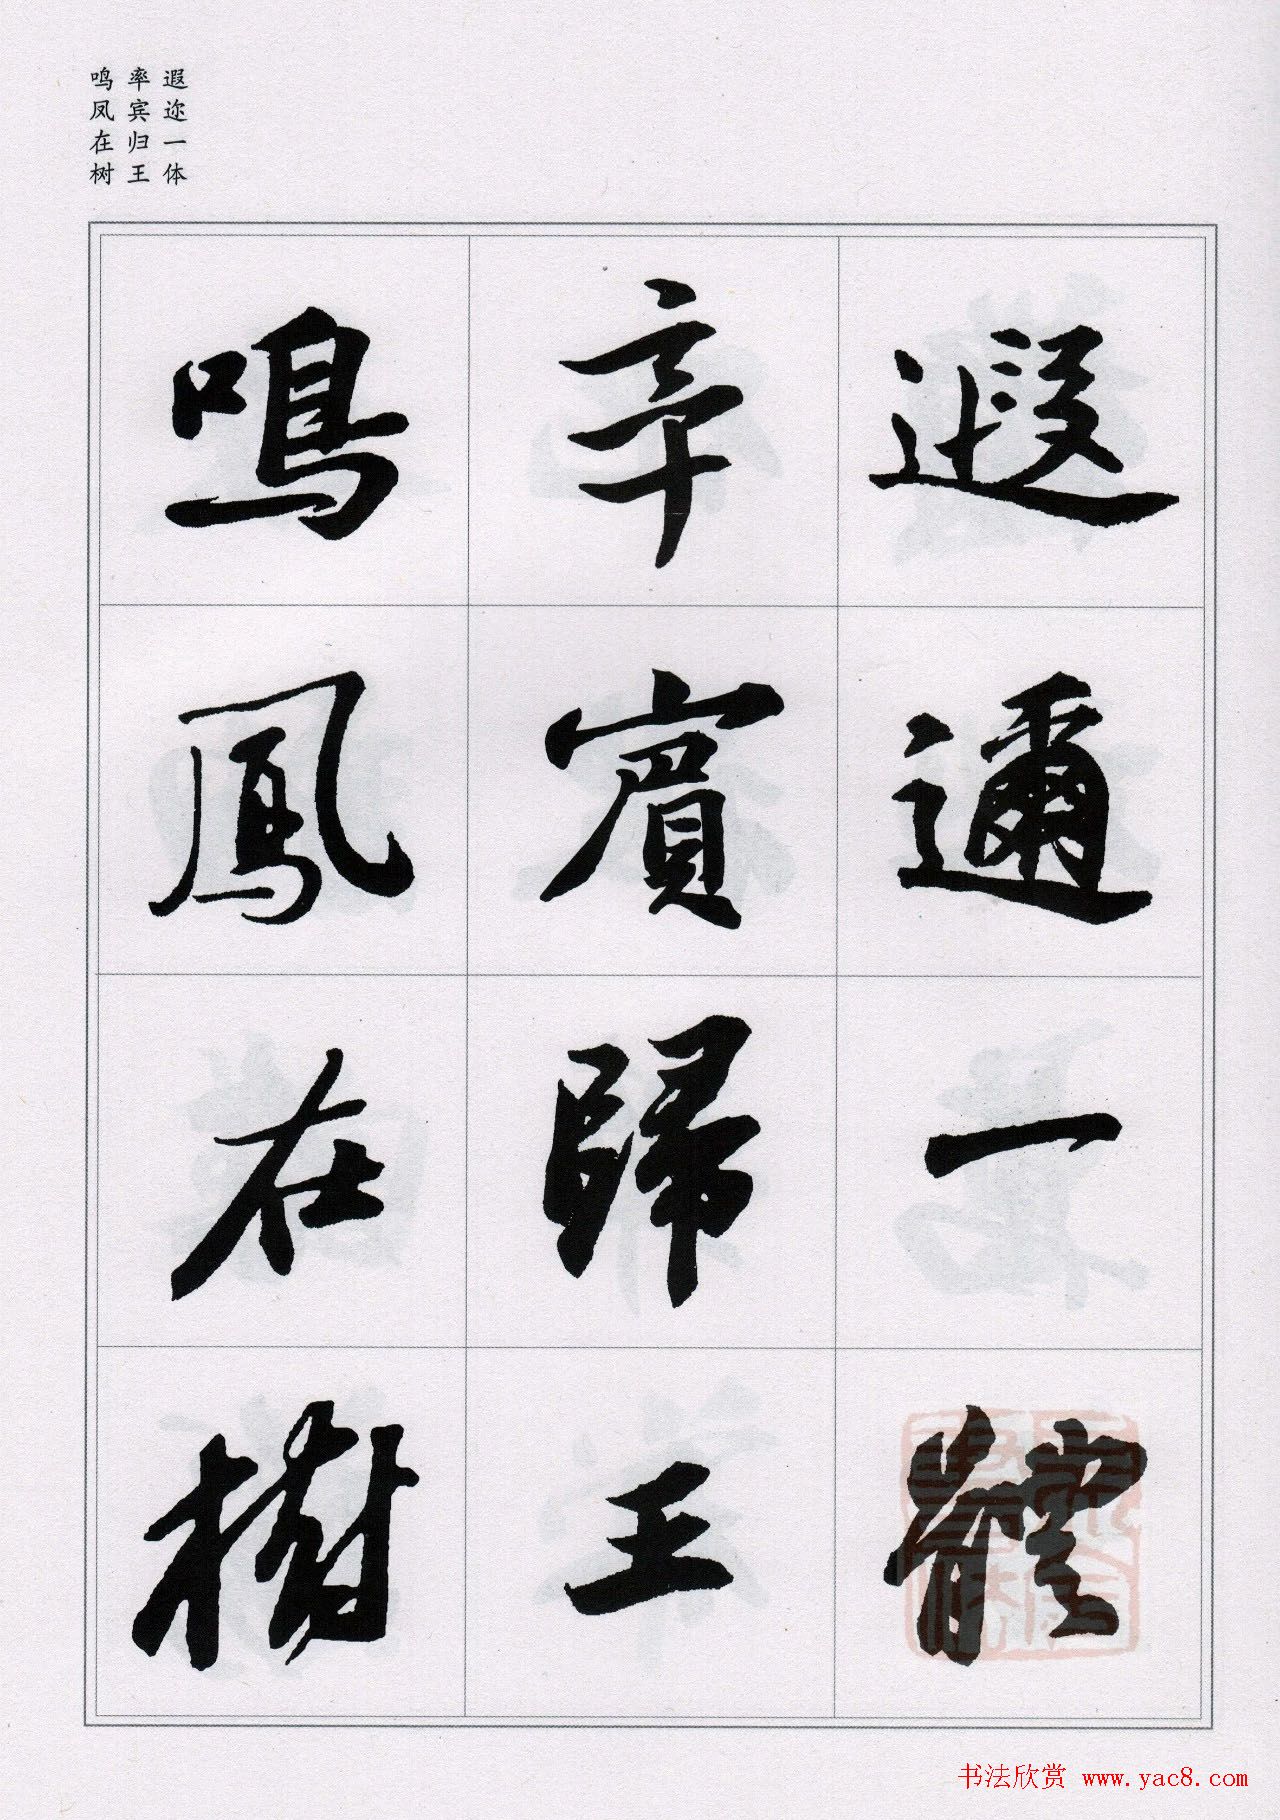 遐迩一体
率宾归王
鸣凤在树
遐邇一體
率賓歸王
鳴鳳在樹
书法欣赏 www.yac8.com